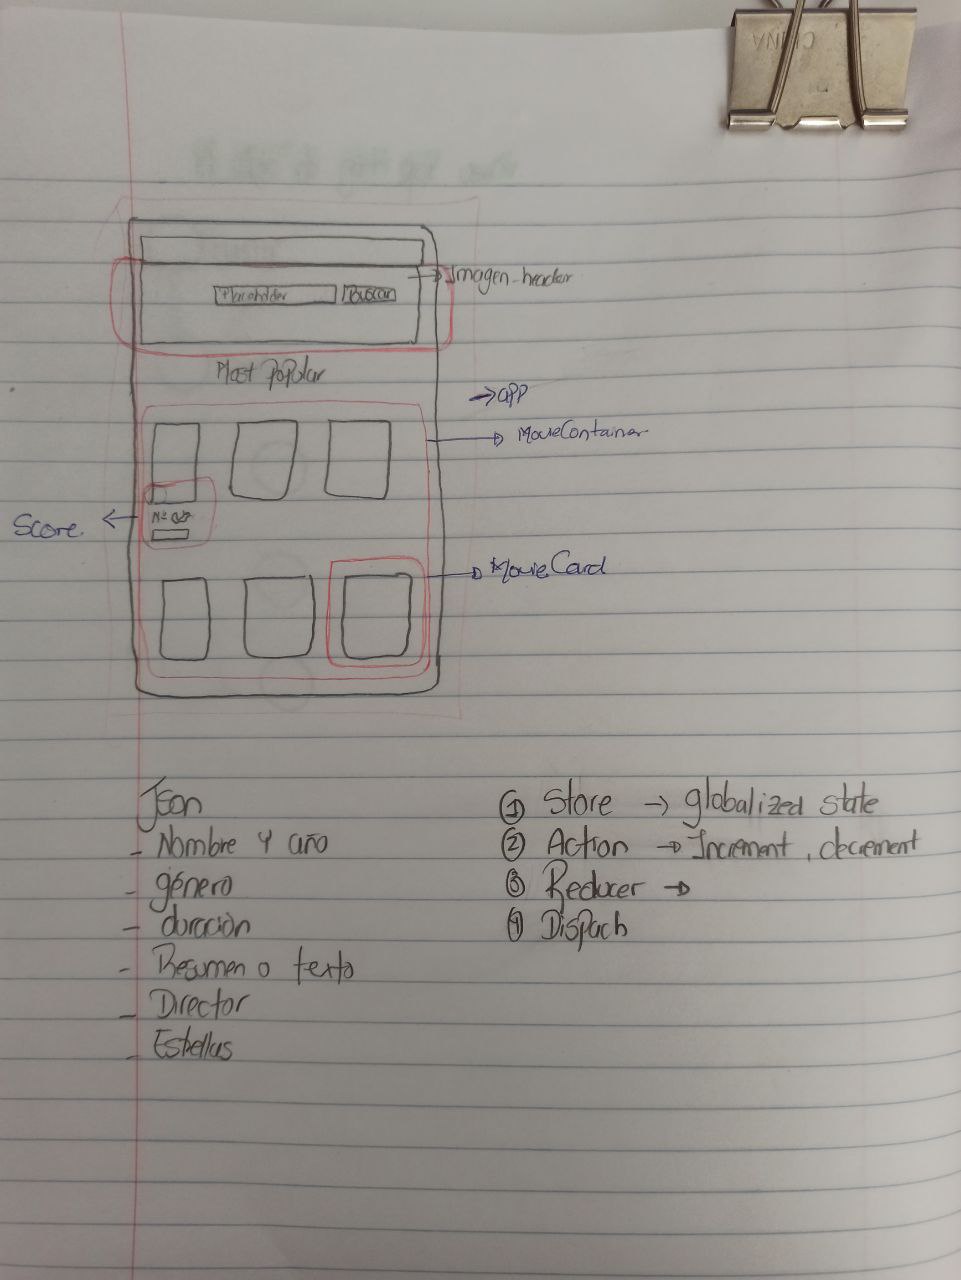 CHINA
Imagen-header
Placeholder
Buscar
Most Popular
app
MovieContainer
Score
MovieCard
Json
- Nombre y año
- género
- duración
- Resumen o texto
- Director
- Estrellas
① Store → globalized state
② Action → Increment, decrement
③ Reducer →
④ Dispach